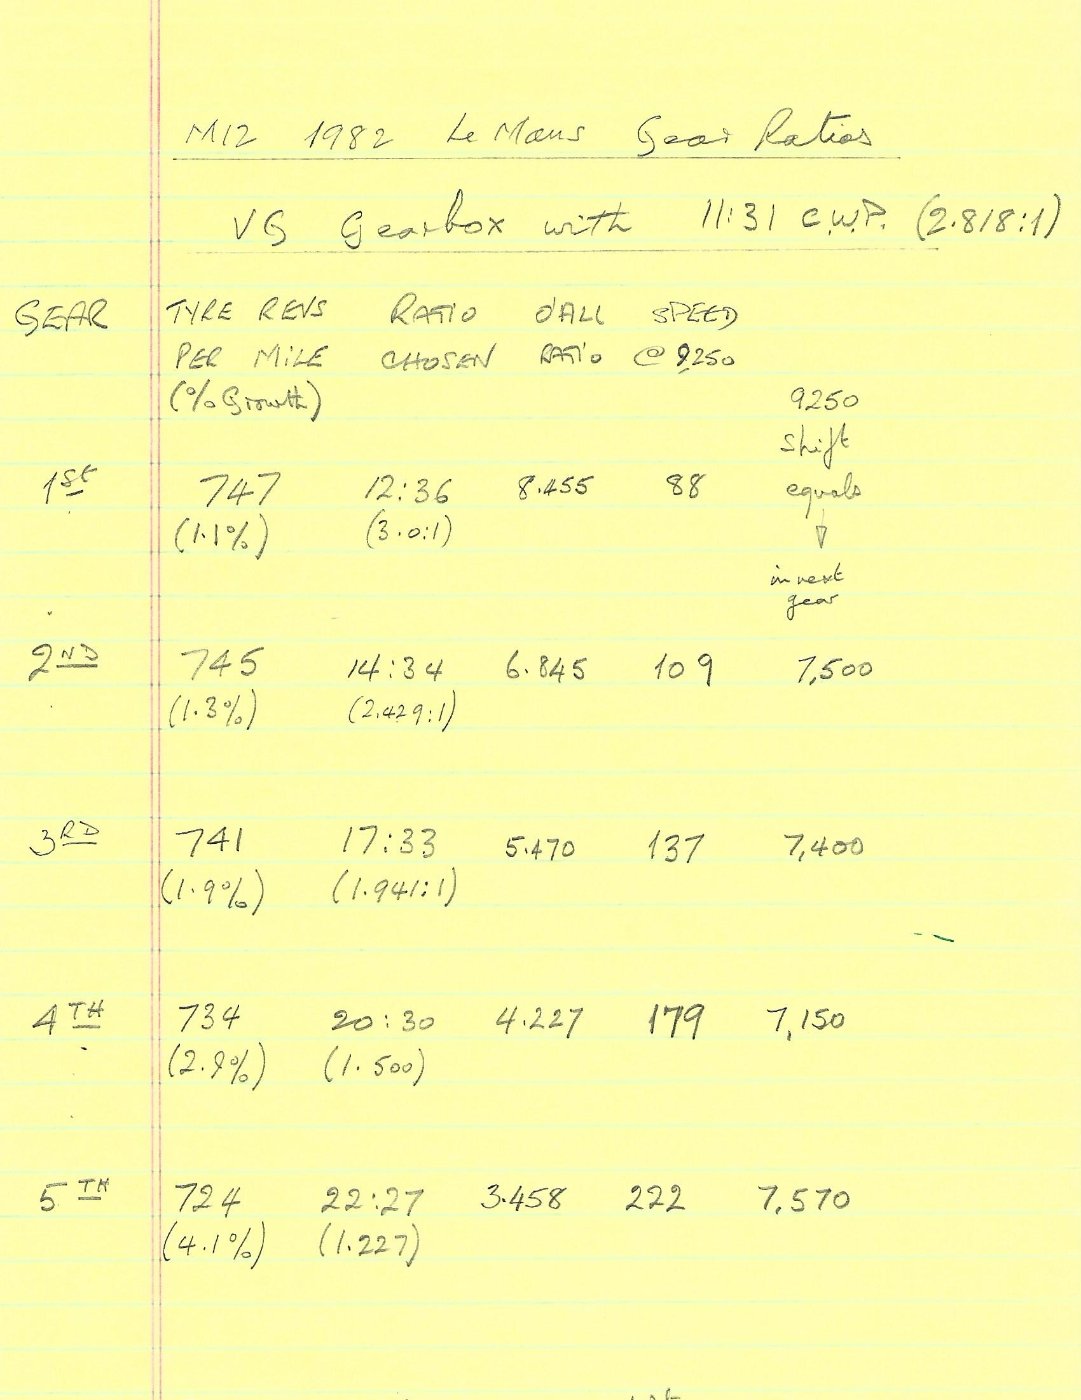 M12 1982 Le Mans Gear Ratios
VG Gearbox with 11:31 C.W.P. (2.818:1)
GEAR TYRE REVS RATIO O'ALL SPEED
PER MILE CHOSEN RATIO @ 9,250
(% Growth) 9250
shift
1st 747 12:36 8.455 88 equals
(1.1%) (3.0:1)
in next
gear
2ND 745 14:34 6.845 109 7,500
(1.3%) (2.429:1)
3RD 741 17:33 5.470 137 7,400
(1.9%) (1.941:1)
4TH 734 20:30 4.227 179 7,150
(2.9%) (1.500)
5TH 724 22:27 3.458 222 7,570
(4.1%) (1.227)